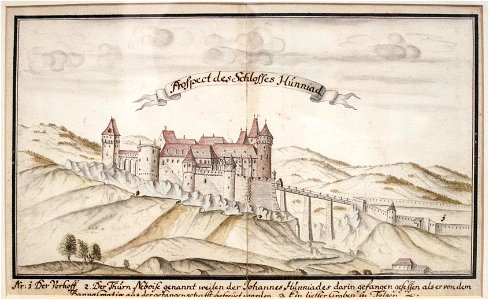 Prospect des Schlosses Hunniad
Nr. 1 Der Vorhoff 2. Der Thurn Neboise genannt weilen der Johannes Hunniades darin gefangen gesessen als er von dem
aus der gefangenschafft 3. Ein tieffer Graben in Felsen